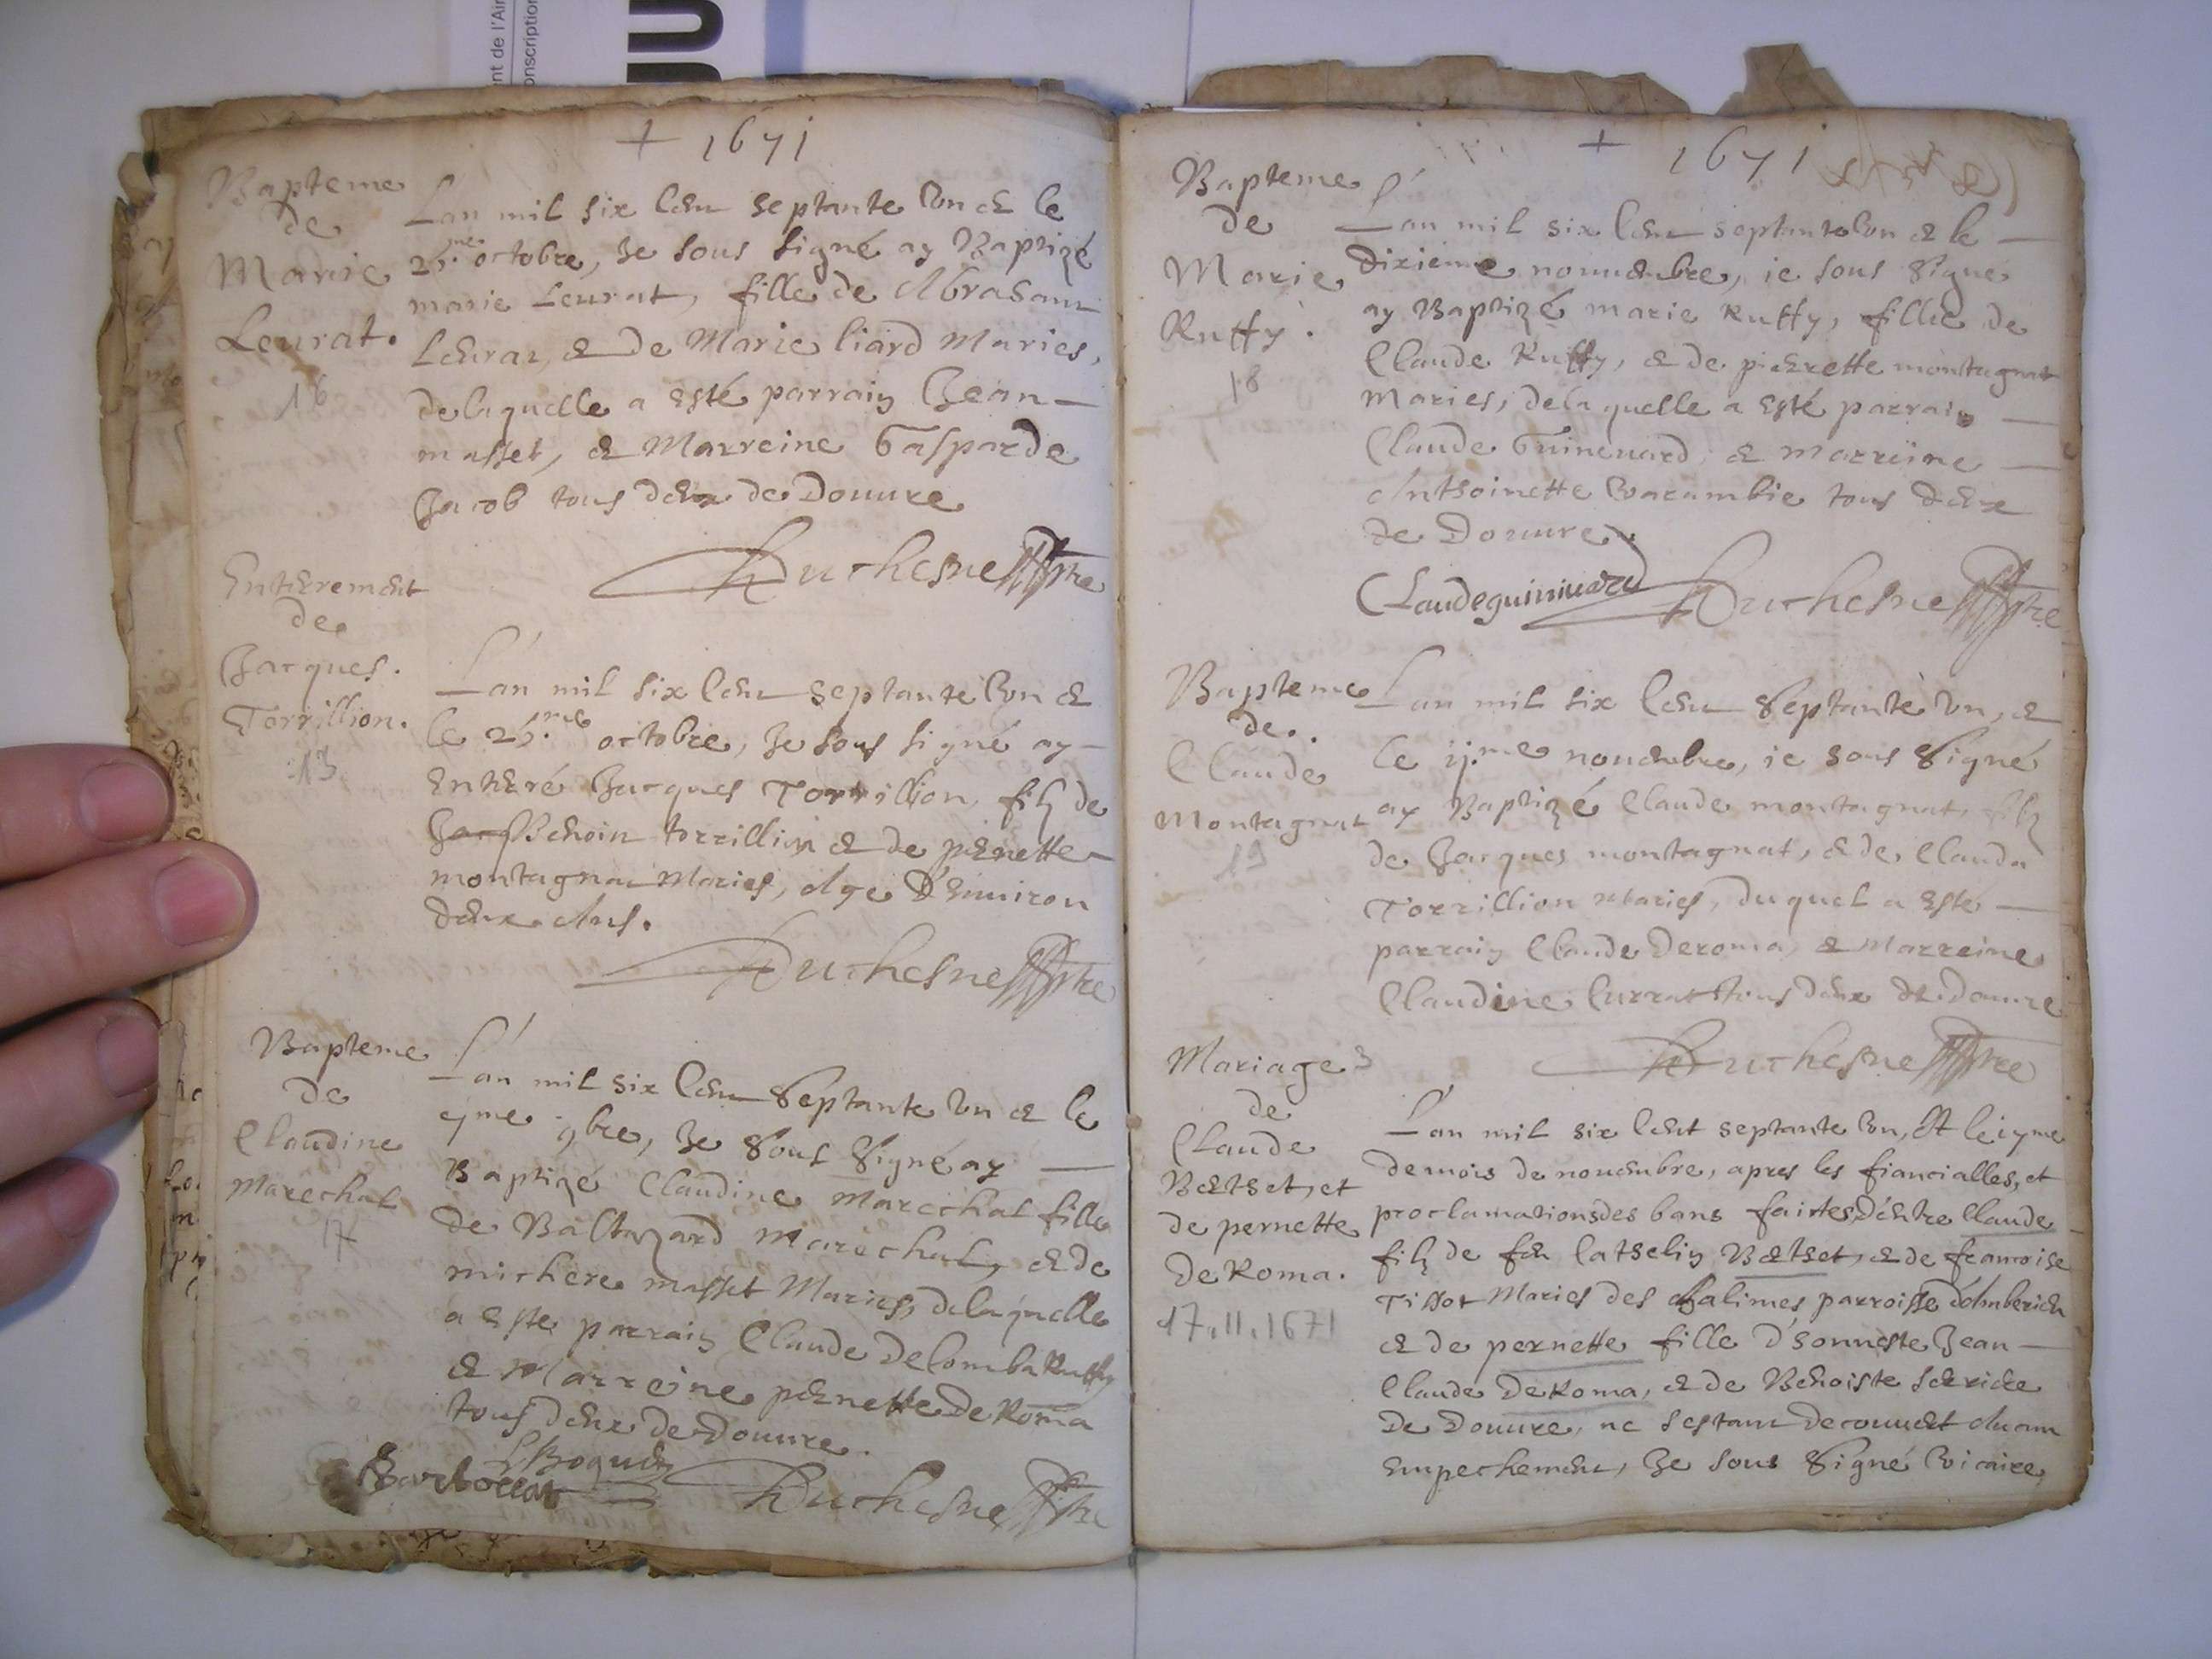 nt de l'Ain
onscription
+ 1671
Bapteme
de
Marie
Leurat.
16
L'an mil six Cent septante Un et le
25.me octobre, Je sous signé ay Baptizé
marie Leurat, fille de Abraham
Leurat, et de Marie liard Maries,
de laquelle a esté parrain Jean —
masset, et Marreine Gasparde
Jacob tous deux de Douure
Duchesne ptre
Enterement
de
Jacques.
Torrillion.
13
L'an mil six Cent septante Un et
le 25.me octobre, Je sous signé ay —
Enteré Jacques Torrillion, filz de
Benoin torrillion et de pernette
montagnat Maries, Age d'enuiron
deux Ans.
Duchesne ptre
Bapteme
de
Claudine
Marechal
17
L'an mil six Cent Septante Un et le
9bre, Je Sous Signé ay —
Baptizé Claudine Marechal fille
de Baltazard Marechal, et de
michere masset Maries, de laquelle
a Este parrain Claude Delomba Ruffy
et Marreine pernette De Roma
tous deux de Douure.
Duchesne ptre
+ 1671
Bapteme
de
Marie
Ruffy.
18
L'an mil six Cent septante Un et le —
dixieme nouembre, ie sous Signe
ay Baptizé marie Ruffy, fille de
Claude Ruffy, et de pierrette montagnat
Maries, de laquelle a esté parrain —
Claude Guineuard, et marreine —
Anthoinette Uarambie tous deux
de Douure.
Claude guiniuard Duchesne ptre
Bapteme
de.
Claude
Montagnat
19
L'an mil six Cent Septante Un, et
le ij.me nouembre, ie sous Signé
ay Baptizé Claude montagnat, filz
de Jacques montagnat, et de Clauda
Torrillion Maries, du quel a Esté —
parrain Claude Deroma, et Marreine
Claudine Currat tous deux de Douure
Duchesne ptre
Mariage
de
Claude
Betset, et
de pernette
De Roma.
17.11.1671
L'an mil six Cent septante Un, Et le
de mois de nouembre, apres les fiancialles, et
proclamations des bans faittes, d'entre Claude
filz de feu Catselin Betset, et de francoise
Tissot Maries des Alimes parroisse d'Amberieu
et de pernette fille d'honneste Jean —
Claude De Roma, et de Benoiste
De Douure, ne s'estant decouuert Aucun
Empechement, Je sous Signé Vicaire,